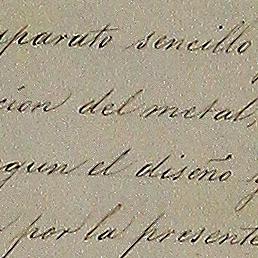 aparato sencillo
cion del metal,
egun el diseño y
por la presente